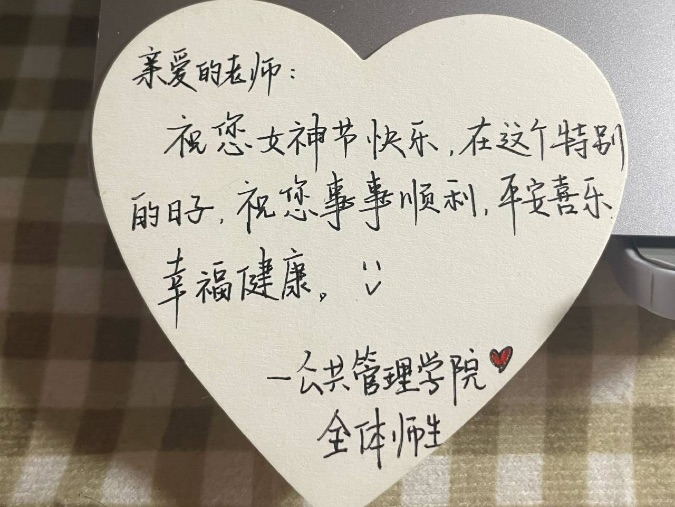 亲爱的老师:
祝您女神节快乐,在这个特别
的日子,祝您事事顺利,平安喜乐
幸福健康。
—公共管理学院
全体师生